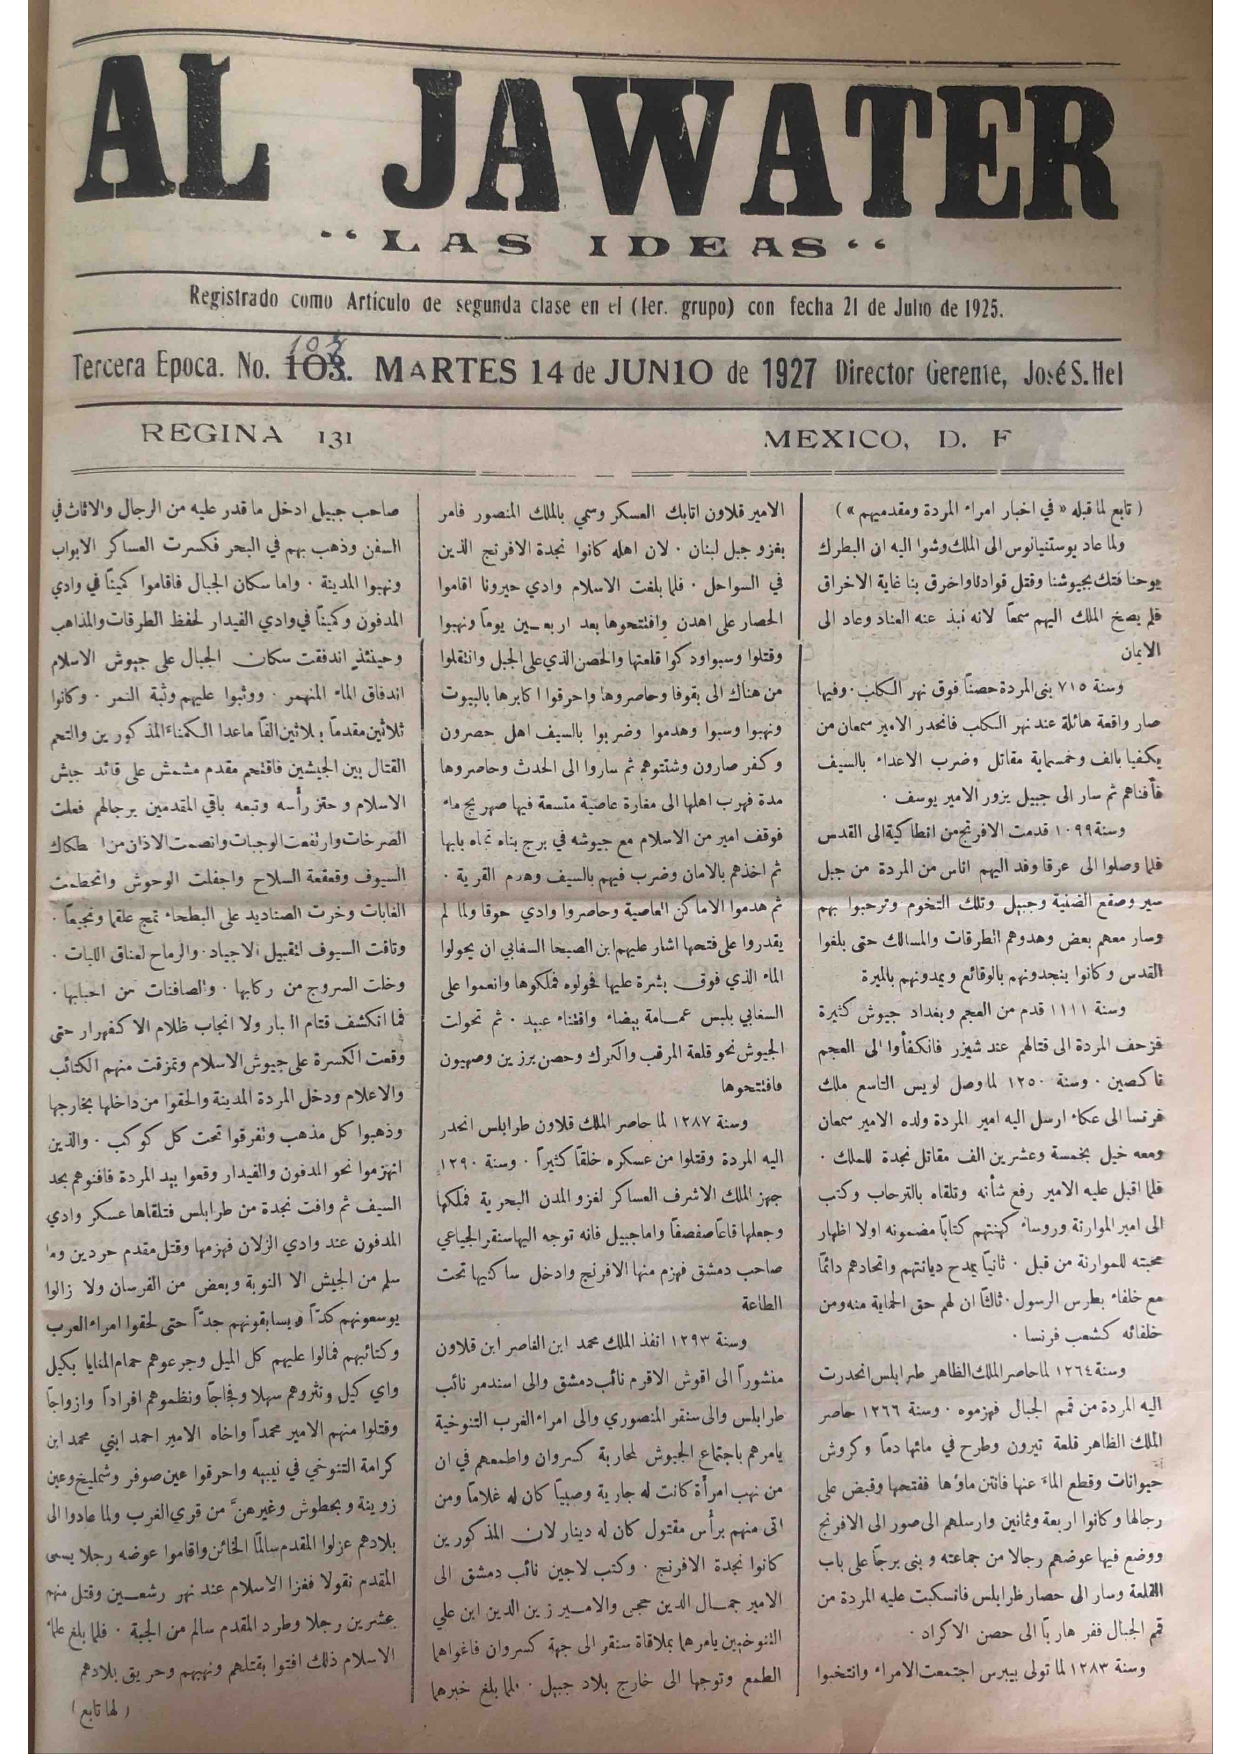 AL JAWATER
"LAS IDEAS"
Registrado como Artículo de segunda clase en el (1er. grupo) con fecha 21 de Julio de 1925.
Tercera Epoca. No. 103. MARTES 14 de JUNIO de 1927 Director Gerente, José S. Hel
REGINA 131
MEXICO, D. F
( تابع لما قبله « في اخبار امراء المردة ومقدميهم » )
ولما عاد يوستنيانوس الى الملك وشوا اليه ان البطرك
يوحنا فتك بجيوشنا وقتل قوادنا واخرق بنا غاية الاخراق
فلم يصخ الملك اليهم سمعاً لانه نبذ عنه العناد وعاد الى
الايمان
وسنة ٧١٥ بنى المردة حصناً فوق نهر الكلب ٠ وفيها
صار واقعة هائلة عند نهر الكلب فانحدر الامير سمعان من
يكفيا بالف وخمسماية مقاتل وضرب الاعداء بالسيف
فأفناهم ثم سار الى جبيل يزور الامير يوسف ٠
وسنة ١٠٩٩ قدمت الافرنج من انطاكية الى القدس
فلما وصلوا الى عرقا وفد اليهم اناس من المردة من جبل
سير وصقع الضنية وجبيل وتلك التخوم وترحبوا بهم
وسار معهم بعض وهدوهم الطرقات والمسالك حتى بلغوا
القدس وكانوا ينجدونهم بالوقائع ويمدونهم بالميرة
وسنة ١١١١ قدم من العجم وبغداد جيوش كثيرة
فزحف المردة الى قتالهم عند شيزر فانكفأوا الى العجم
ناكصين ٠ وسنة ١٢٥٠ لما وصل لويس التاسع ملك
فرنسا الى عكاء ارسل اليه امير المردة ولده الامير سمعان
ومعه خيل بخمسة وعشرين الف مقاتل نجدة للملك ٠
فلما اقبل عليه الامير رفع شأنه وتلقاه بالترحاب وكتب
الى امير الموارنة وروساء كهنتهم كتاباً مضمونه اولا اظهار
محبته للموارنة من قبل ٠ ثانياً يمدح ديانتهم واتحادهم دائماً
مع خلفاء بطرس الرسول ٠ ثالثاً ان لهم حق الحماية منه ومن
خلفائه كشعب فرنسا ٠
وسنة ١٢٦٤ لما حاصر الملك الظاهر طرابلس انحدرت
اليه المردة من قمم الجبال فهزموه ٠ وسنة ١٢٦٦ حاصر
الملك الظاهر قلعة تيرون وطرح في مائها دماً وكروش
حيوانات وقطع الماء عنها فانتن ماؤها ففتحها وقبض على
رجالها وكانوا اربعة وثمانين وارسلهم الى صور الى الافرنج
ووضع فيها عوضهم رجالا من جماعته وبنى برجاً على باب
القلعة وسار الى حصار طرابلس فانسكبت عليه المردة من
قمم الجبال ففر هارباً الى حصن الاكراد ٠
وسنة ١٢٨٣ لما تولى بيبرس اجتمعت الامراء وانتخبوا
الامير قلاون اتابك العسكر وسمي بالملك المنصور فامر
بغزو جبل لبنان ٠ لان اهله كانوا نجدة الافرنج الذين
في السواحل ٠ فلما بلغت الاسلام وادي حيرونا اقاموا
الحصار على اهدن وافتتحوها بعد اربعين يوماً ونهبوا
وقتلوا وسبوا ودكوا قلعتها والحصن الذي على الجبل وانتقلوا
من هناك الى بقوفا وحاصروها واحرقوا اكابرها بالبيوت
ونهبوا وسبوا وهدموا وضربوا بالسيف اهل حصرون
وكفر صارون وشتتوهم ثم ساروا الى الحدث وحاصروها
مدة فهرب اهلها الى مغارة عاصية متسعة فيها صهريج ماء
فوقف امير من الاسلام مع جيوشه في برج بناه تجاه بابها
ثم اخذهم بالامان وضرب فيهم بالسيف وهدم القرية ٠
ثم هدموا الاماكن العاصية وحاصروا وادي حوقا ولما لم
يقدروا على فتحها اشار عليهم ابن الصبحا السغابي ان يحولوا
الماء الذي فوق بشرة عليها فحولوه فملكوها وانعموا على
السغابي بلبس عمامة بيضاء واقتناء عبيد ٠ ثم تحولت
الجيوش نحو قلعة المرقب والكرك وحصن برزين وصهيون
وافتتحوها
وسنة ١٢٨٧ لما حاصر الملك قلاون طرابلس انحدر
اليه المردة وقتلوا من عسكره خلقاً كثيراً ٠ وسنة ١٢٩٠
جهز الملك الاشرف العساكر لغزو المدن البحرية فملكها
وجعلها قاعاً صفصفاً واما جبيل فانه توجه اليها سنقر الجياعي
صاحب دمشق فهزم منها الافرنج وادخل ساكنيها تحت
الطاعة
وسنة ١٢٩٣ انفذ الملك محمد ابن الناصر ابن قلاون
منشوراً الى اقوش الاقرم نائب دمشق والى اسندمر نائب
طرابلس والى سنقر المنصوري والى امراء الغرب التنوخية
يامرهم باجتماع الجيوش لمحاربة كسروان واطمعهم في ان
من نهب امرأة كانت له جارية وصبياً كان له غلاماً ومن
اتى منهم برأس مقتول كان له دينار لان المذكورين
كانوا نجدة الافرنج ٠ وكتب لاجين نائب دمشق الى
الامير جمال الدين حجى والامير زين الدين ابن علي
التنوخيين يامرهما بملاقاة سنقر الى جهة كسروان فاغواهما
الطمع وتوجها الى خارج بلاد جبيل ٠ فلما بلغ خبرهما
صاحب جبيل ادخل ما قدر عليه من الرجال والاثاث في
السفن وذهب بهم في البحر فكسرت العساكر الابواب
ونهبوا المدينة ٠ واما سكان الجبال فاقاموا كميناً في وادي
المدفون وكميناً في وادي الفيدار لحفظ الطرقات والمذاهب
وحينئذٍ اندفقت سكان الجبال على جيوش الاسلام
اندفاق الماء المنهمر ٠ ووثبوا عليهم وثبة النمر ٠ وكانوا
ثلاثين مقدماً بثلاثين الفاً ماعدا الكمناء المذكورين والتحم
القتال بين الجيشين فاقتحم مقدم مشمش على قائد جيش
الاسلام وحز رأسه وتبعه باقي المقدمين برجالهم فعلت
الصرخات وارتفعت الوجبات وانصمت الاذان من اصطكاك
السيوف وقعقعة السلاح واجفلت الوحوش وانحطمت
الغابات وخرت الصناديد على البطحاء تمج علقما ونجيعاً ٠
وتاقت السيوف لتقبيل الاجياد ٠ والرماح لعناق اللبات ٠
وخلت السروج من ركابها ٠ والصافنات من احبابها ٠
فما انكشف قتام ولا انجاب ظلام الاكفهرار حتى
وقعت الكسرة على جيوش الاسلام وتمزقت منهم الكتائب
والاعلام ودخل المردة المدينة والحقوا من داخلها بخارجها
وذهبوا كل مذهب وتفرقوا تحت كل كوكب ٠ والذين
انهزموا نحو المدفون والفيدار وقعوا بيد المردة فافنوهم بحد
السيف ثم وافت نجدة من طرابلس فتلقاها عسكر وادي
المدفون عند وادي الزلان فهزمها وقتل مقدم حردين وما
سلم من الجيش الا النوبة وبعض من الفرسان ولا زالوا
يوسعونهم كدّاً ويسابقونهم جدّاً حتى لحقوا امراء العرب
وكتائبهم فمالوا عليهم كل الميل وجرعوهم حمام المنايا بكيل
واي كيل ونثروهم سهلا وفجاجاً ونظموهم افراداً وازواجاً
وقتلوا منهم الامير محمداً واخاه الامير احمد ابني محمد ابن
كرامة التنوخي في نيبيه واحرقوا عين صوفر وشمليخ وعين
زوينة وبحطوش وغيرهنَّ من قرى الغرب ولما عادوا الى
بلادهم عزلوا المقدم سالماً الخائن واقاموا عوضه رجلا يسمى
المقدم نقولا فغزا الاسلام عند نهر رشعين وقتل منهم
عشرين رجلا وطرد المقدم سالم من الجبة ٠ فلما بلغ علماء
الاسلام ذلك افتوا بقتلهم ونهبهم وحريق بلادهم
( لها تابع )